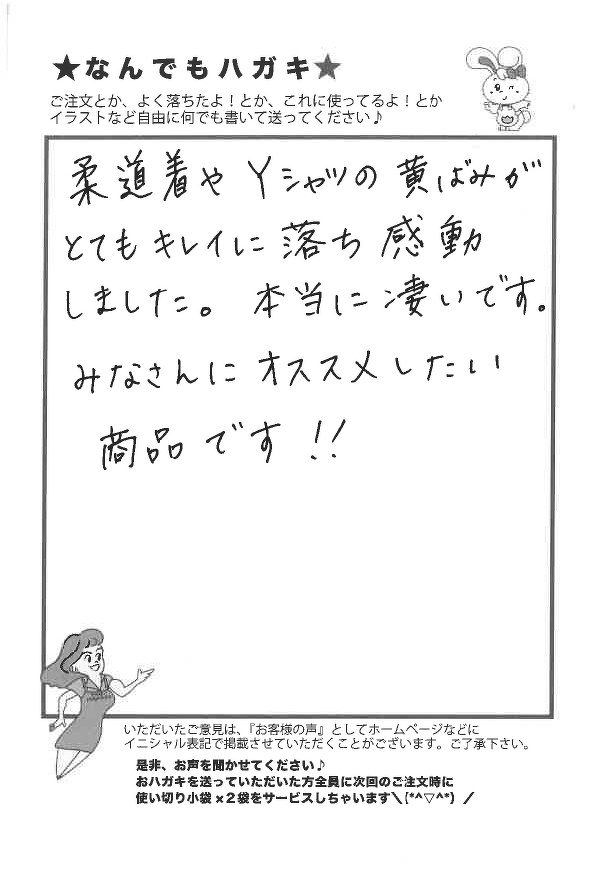 ★なんでもハガキ★
ご注文とか、よく落ちたよ！とか、これに使ってるよ！とか
イラストなど自由に何でも書いて送ってください♪
柔道着やYシャツの黄ばみが
とてもキレイに落ち感動
しました。本当に凄いです。
みなさんにオススメしたい
商品です!!
いただいたご意見は、『お客様の声』としてホームページなどに
イニシャル表記で掲載させていただくことがございます。ご了承下さい。
是非、お声を聞かせてください♪
おハガキを送っていただいた方全員に次回のご注文時に
使い切り小袋×2袋をサービスしちゃいます＼(*^▽^*)／